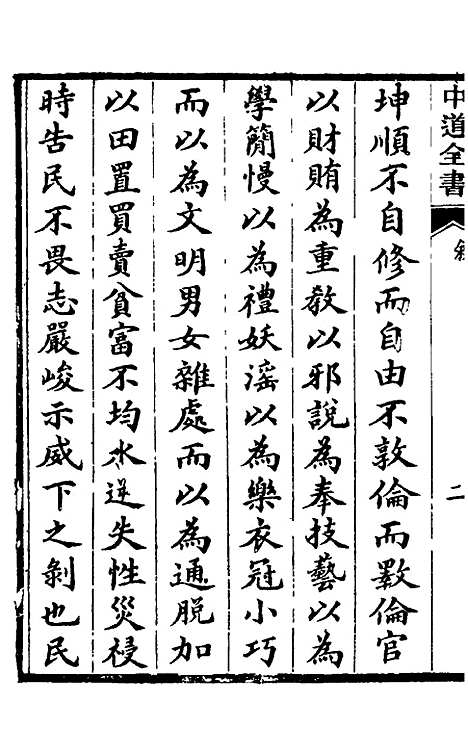 中道全書
二
坤順不自修而自由不敦倫而斁倫官
以財賄為重教以邪說為奉技藝以為
學簡慢以為禮妖滛以為樂衣冠小巧
而以為文明男女雜處而以為通脫加
以田置買賣貧富不均水逆失性災祲
時告民不畏志嚴峻示威下之剝也民